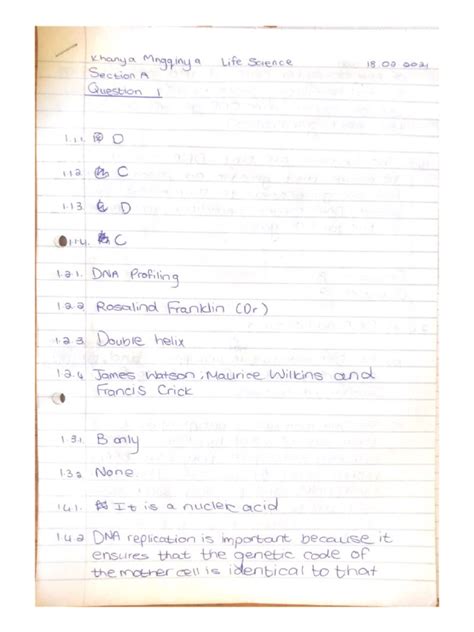 Khanya Mngqinya Life Science 18.02 2021
Section A
Question 1
1.1.1. D
1.1.2. C
1.1.3. D
1.1.4. C
1.2.1. DNA Profiling
1.2.2 Rosalind Franklin (Dr)
1.2.3 Double helix
1.2.4 James Watson, Maurice Wilkins and
Francis Crick
1.3.1. B only
1.3.2 None.
1.4.1. It is a nucleic acid
1.4.2 DNA replication is important because it
ensures that the genetic code of
the mother cell is identical to that